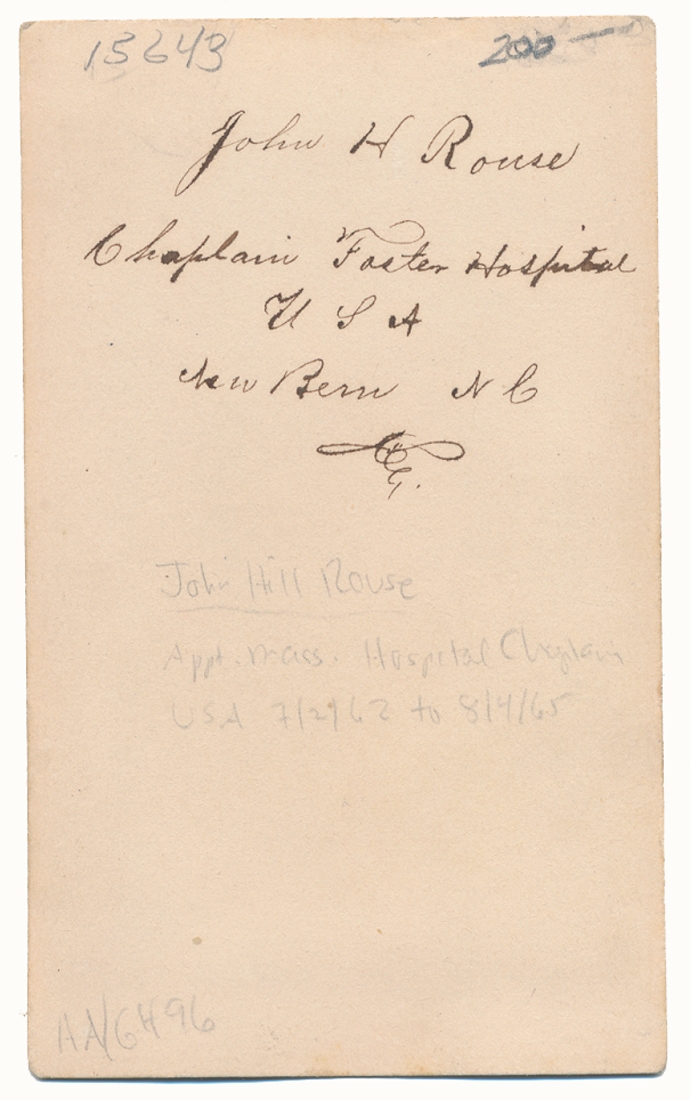 15643
200 —
John H Rouse
Chaplain Foster Hospital
U S A
New Bern N C
John Hill Rouse
Appt. Mass. Hospital Chaplain
USA 7/2/62 to 8/4/65